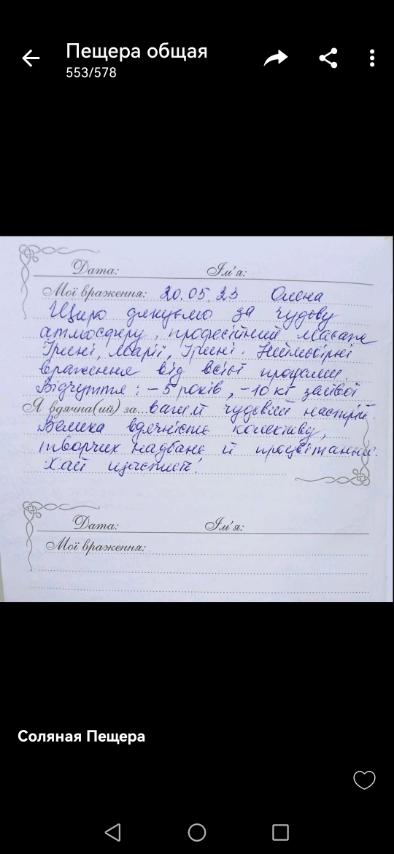 Пещера общая
553/578
Дата: Ім'я:
Мої враження: 20.05.23 Олена
Щиро дякуємо за чудову
атмосферу, професійний масаж
Ірині, Марії, Ірині. Неймовірні
враження від всієї процедури.
Відчуття: -5 років, -10 кг зайвої
Я вдячна(ий) за ваш й чудовий настрій.
Велика вдячність колективу,
творчих надбань й процвітання.
Хай щастить!
Дата: Ім'я:
Мої враження:
Соляная Пещера